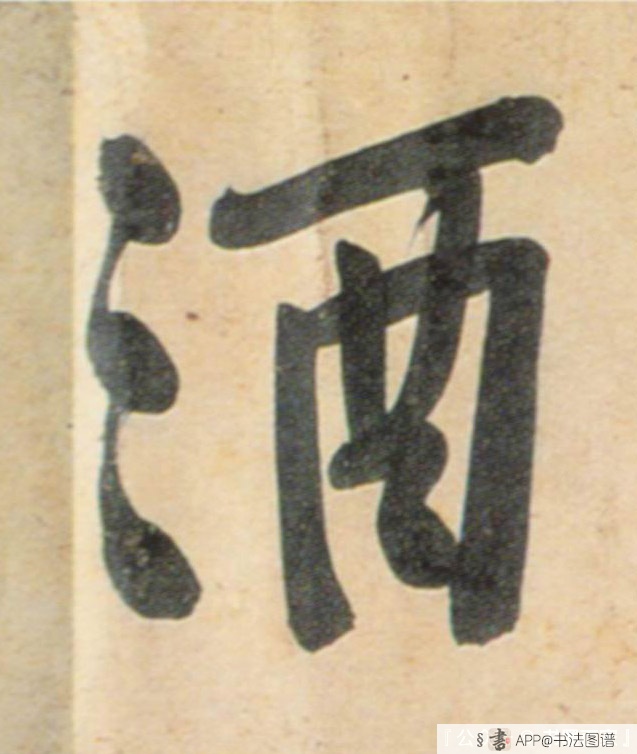 酒
§書 APP@书法图谱